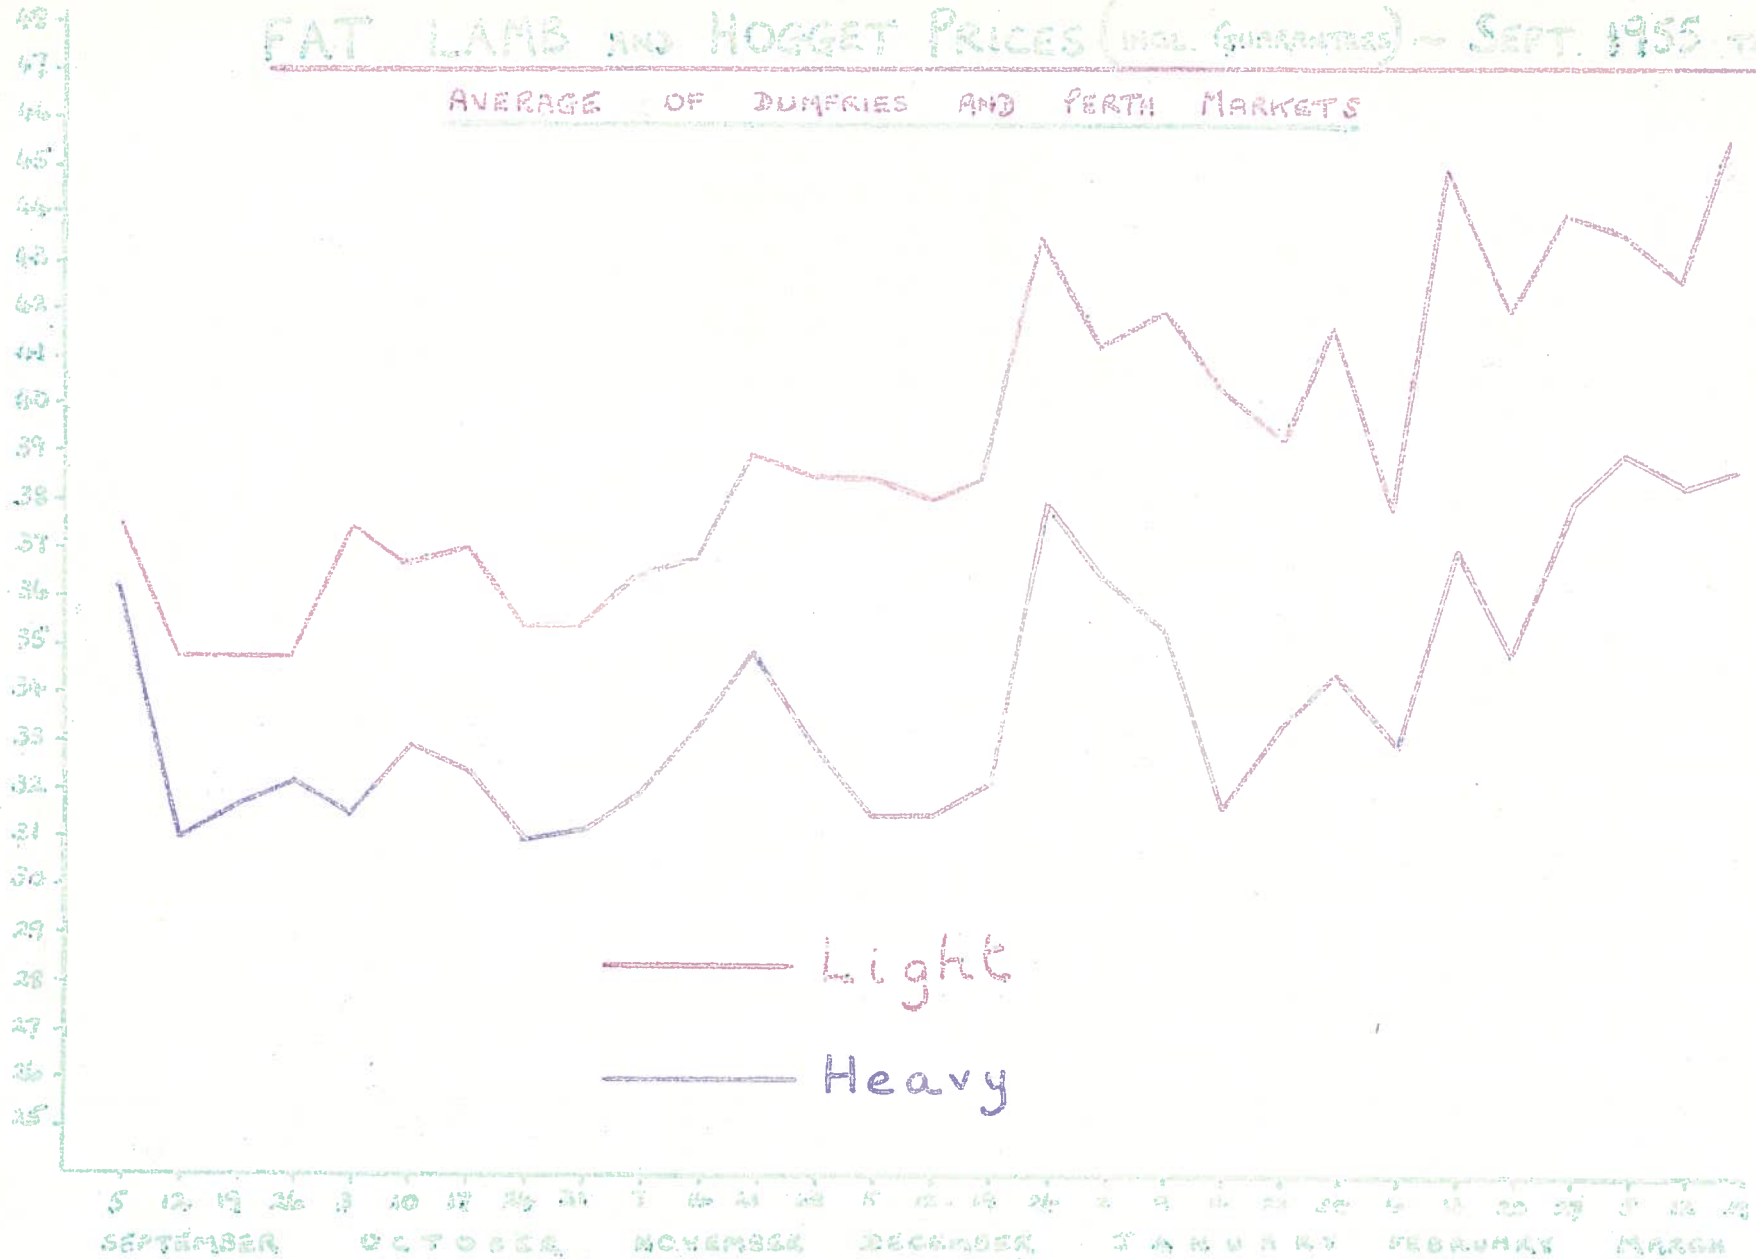 FAT LAMB AND HOGGET PRICES (INCL. GUARANTEES) ~ SEPT. 1955
AVERAGE OF DUMFRIES AND PERTH MARKETS
48
47
46
45
44
43
42
41
40
39
38
37
36
35
34
33
32
31
30
29
28
27
26
25
Light
Heavy
5 12 19 26 3 10 17 24 31 7 14 21 28 5 12 19
SEPTEMBER OCTOBER NOVEMBER DECEMBER JANUARY FEBRUARY MARCH